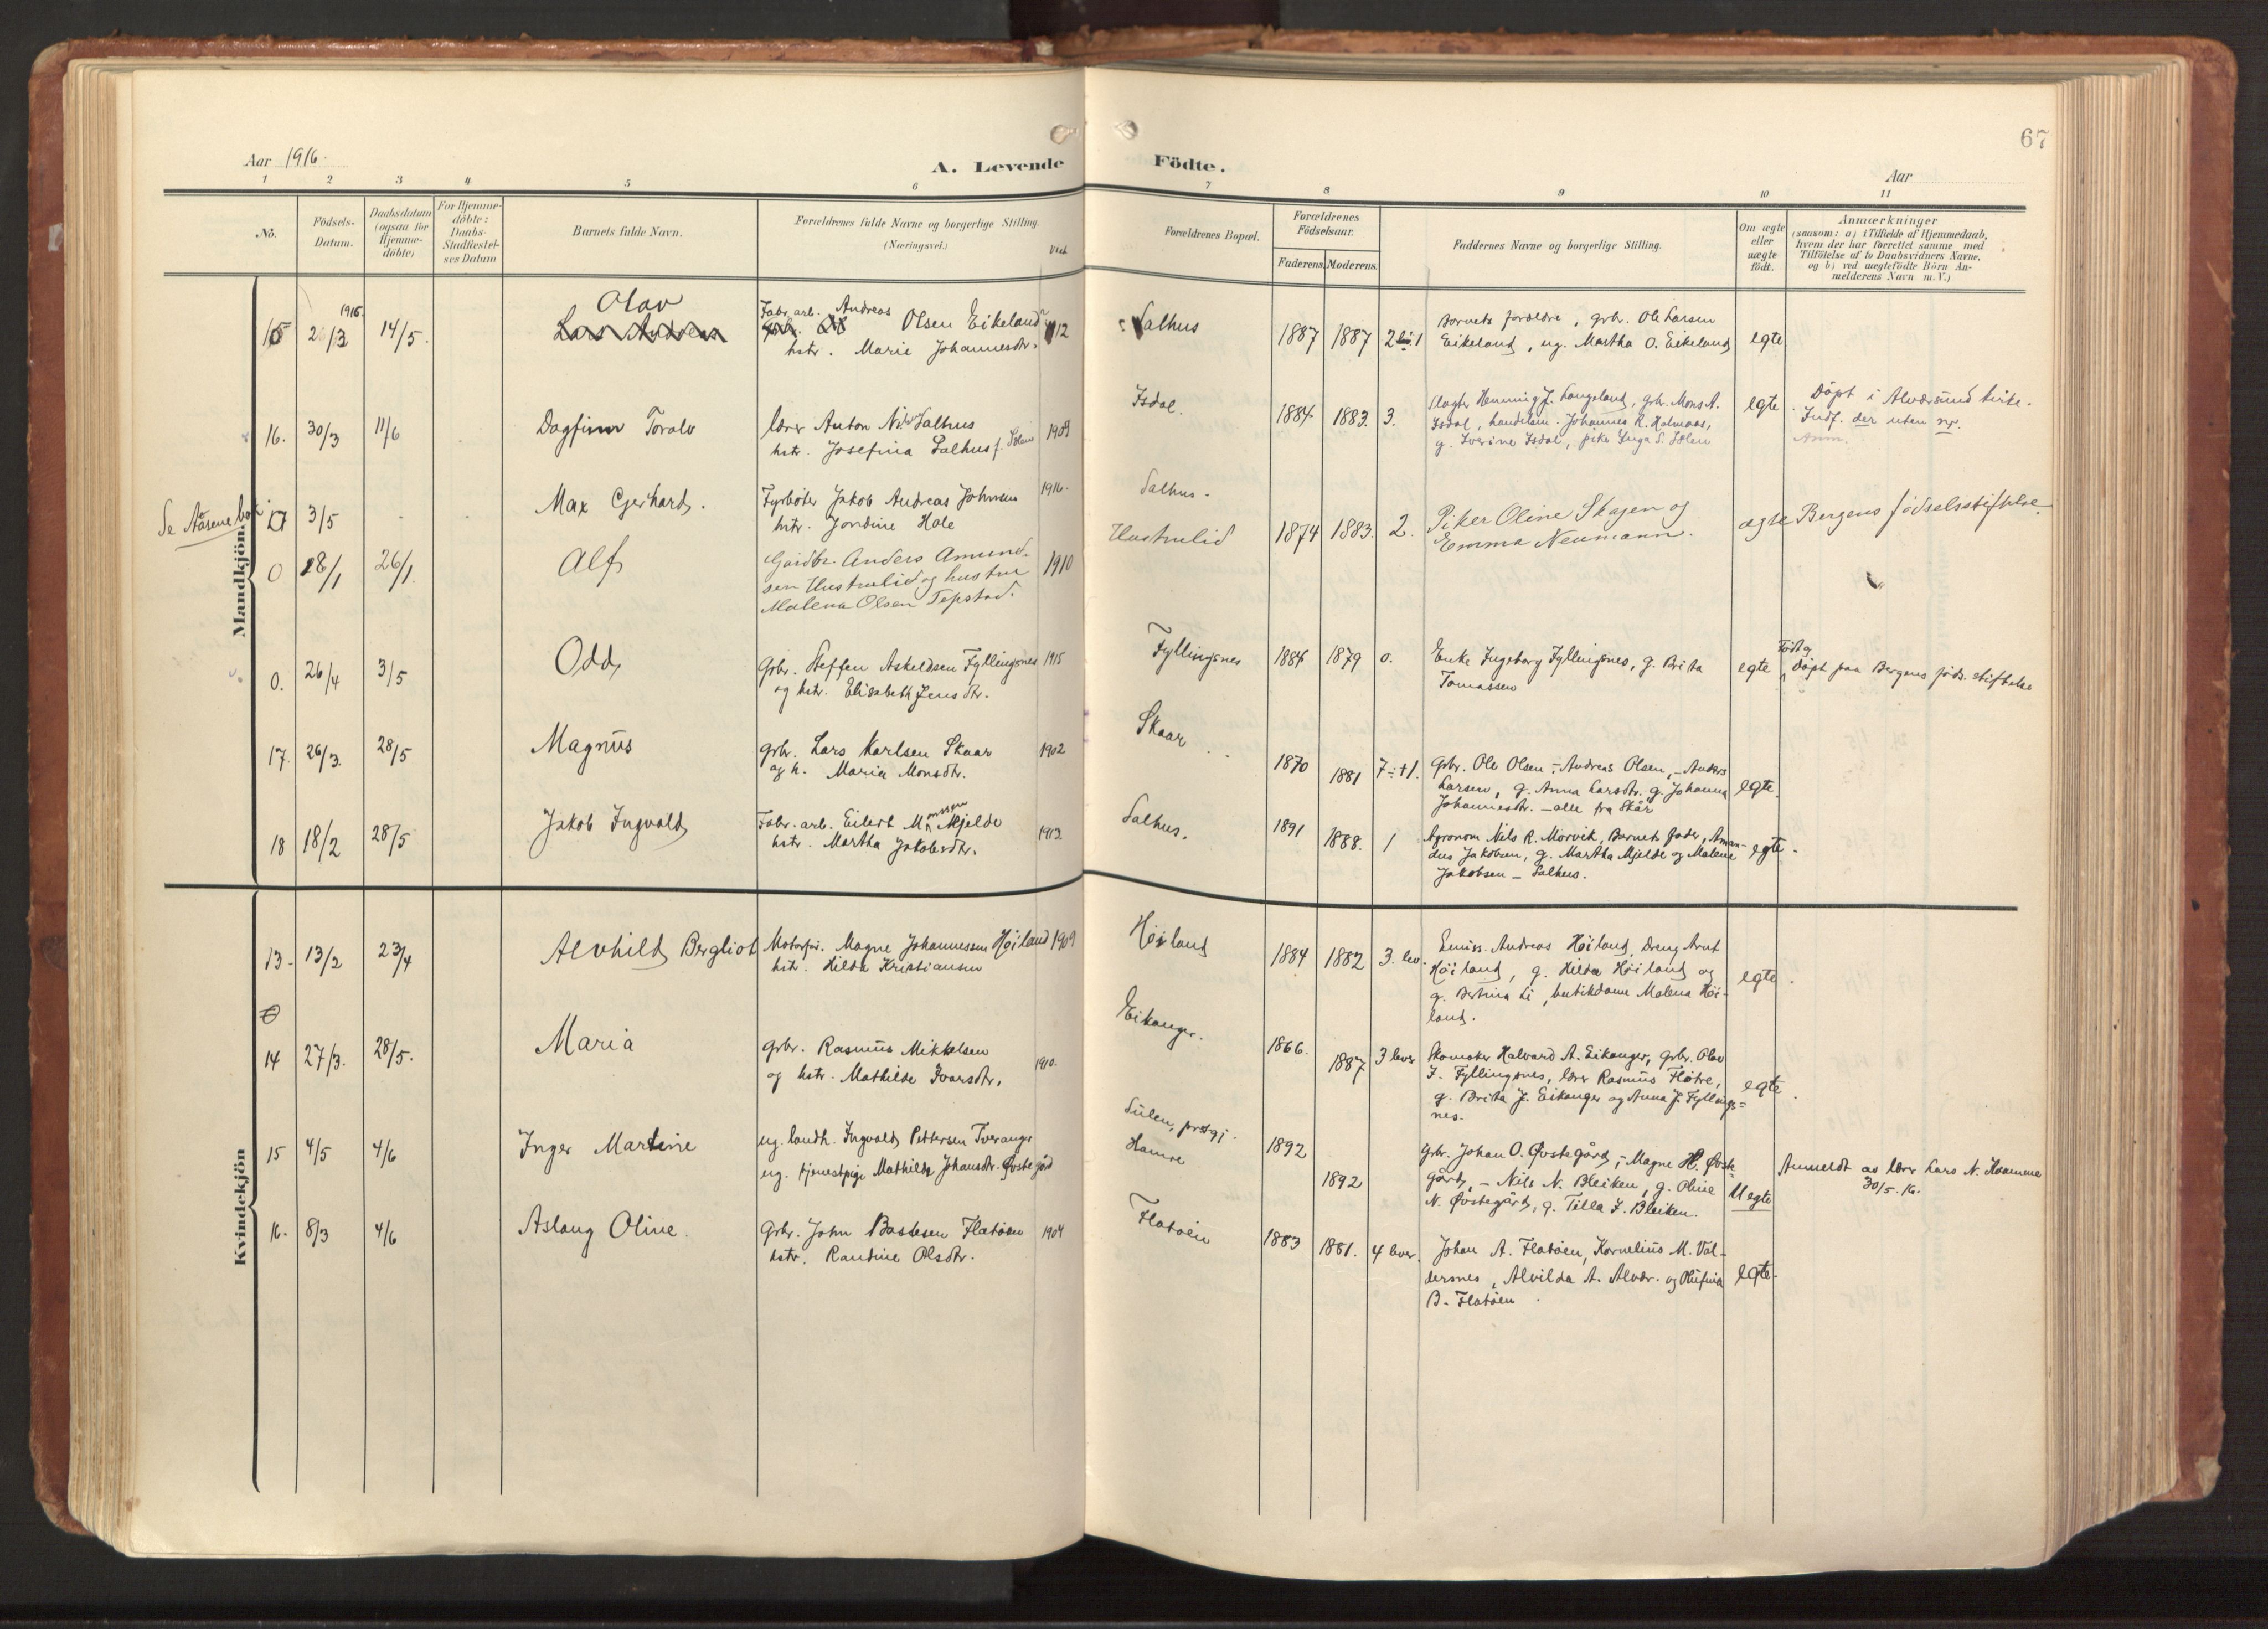 67
Aar 1916.
A. Levende Födte.
Aar
1 2 3 4 5 6 7 8 9 10 11
Nō.
Födsels-
Datum.
Daabsdatum
(ogsaa for
Hjemme-
döbte)
For Hjemme-
döbte:
Daabs-
Stadfæstel-
ses Datum
Barnets fulde Navn.
Forældrenes fulde Navne og borgerlige Stilling.
(Næringsvei.)
Forældrenes Bopæl.
Forældrenes
Födselsaar.
Faderens. Moderens.
Faddernes Navne og borgerlige Stilling.
Om ægte
eller
uægte
födt.
Anmærkninger
(saasom: a) i Tilfælde af Hjemmedaab,
hvem der har forrettet samme med
Tilföielse af to Daabsvidners Navne,
og b) ved uægtefödte Börn An-
melderens Navn m. V.)
Mandkjön.
15 2/3 1916. 14/5.
Olav
Fabr. arb. Andreas Olsen Eikeland
hstr. Marie Johannesdtr. 12
Salhus 1887 1887
Barnets forældre, grbr. Ole Larsen
Eikeland, ug. Martha O. Eikeland
egte
16. 30/3 11/6 Dagfinn Toralv
lærer Anton Salhus
hstr. Josefina Salhus f. 1909
Isdal. 1884 1883. 3.
Slagter Henning J. Langeland, grb. Mons A.
Isdal, handelsm. Johannes R. Halmaas,
g. Iverine Isdal, pike Inga S.
egte
Döpt i Alversund kirke.
Indf. der uten nr.
Anm.
Se Aasene bok
17 3/5 - - Max Gerhard.
Fyrböter Jakob Andreas Johnsen
hstr. Jondine Hole
1916.
Salhus.
0 28/1 26/1. Alf
Gaardbr. Anders Amund-
sen Hustrulid og hustru
Malena Olsen Tepstad.
1910
Hustrulid 1874 1883. 2.
Piker Oline Skagen og
Emma Neumann.
ægte Bergens födselsstiftelse
0. 26/4 3/5 Odd
Grbr. Steffen Askeldsen Fyllingsnes 1915
og hstr. Elisabeth Jensdtr.
Fyllingsnes 1886 1879 0.
Enke Ingeborg Fyllingsnes, g. Brita
Tomassen
egte
Födt og
döpt paa Bergens föds. stiftelse
17. 26/3. 28/5 Magnus
grbr. Lars Karlsen Skaar 1902
og h. Maria Monsdtr.
Skaar 1870 1881 7 + 1.
Grbr. Ole Olsen, - Andreas Olsen, - Anders
Larsen, g. Anna Larsdtr. g. Johanna
Johannesdtr. - alle fra Skår
egte.
18 18/2 28/5 Jakob Ingvald
Fabr. arb. Eilert Monssen Mjelde
hstr. Martha Jakobsdtr. 1913.
Salhus. 1891 1888. 1
Agronom Nils R. Morvik, Barnets fader, Aman-
dus Jakobsen, g. Martha Mjelde og Malene
Jakobsen - Salhus.
egte.
Kvindekjön
13. 13/2 23/4 Alvhild Bergliot
Motorfür. Magne Johannessen Höiland 1909
hstr. Hilda Kristiansen
Höiland 1884 1882 3. lev.
Emiss. Andreas Höiland, Dreng Arnt
Höiland, g. Hilda Höiland og
g. Bertina Li, butikdame Malena Höi-
land.
egte.
14 27/3. 28/5. Maria
grbr. Rasmus Mikkelsen
og hstr. Mathilde Ivarsdtr. 1910.
Eikanger. 1866. 1887 3 lever
Skomaker Halvard A. Eikanger, grbr. Olav
I. Fyllingsnes, lærer Rasmus Flötre,
g. Brita J. Eikanger og Anna J. Fyllings-
nes.
egte.
15 4/5 4/6 Inger Martine
ug. landh. Ingvald Pettersen Tveranger
ug. tjenestpige Mathilde Johansdtr. Øvstegård
Sulen, prstgj.
Hamre
1892 1892
Grbr. Johan O. Øvstegård, - Magne H. Øvste-
gård, - Nils N. Bleiken, g. Oline
N. Øvstegård, g. Tilla J. Bleiken.
Uegte
Anmeldt av lærer Lars N. Haamme
30/5. 16.
16. 8/3 4/6 Aslaug Oline.
Grbr. John Bastesen Flatöen 1904
hstr. Randine Olsdtr.
Flatöen 1883 1881. 4 lever.
Johan A. Flatöen, Kornelius M. Val-
dersnes, Alvilda A. Alvær. og Olufina
B. Flatöen.
egte.